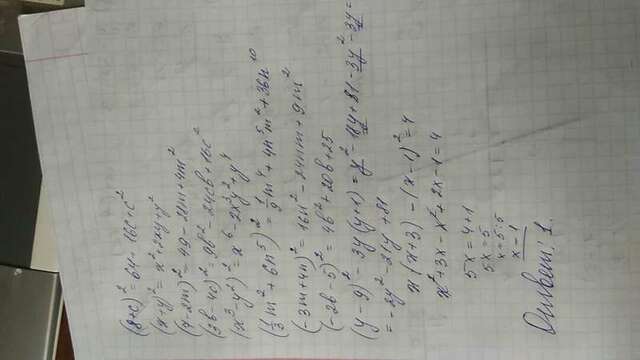 (8+c)² = 64 + 16c + c²
(x+y)² = x² + 2xy + y²
(7-2m)² = 49 - 28m + 4m²
(3b-4c)² = 9b² - 24cb + 16c²
(x³-y²)² = x⁶ - 2x³y² + y⁴
(1/3m² + 6n⁵)² = 1/9m⁴ + 4n⁵m² + 36n¹⁰
(-3m+4n)² = 16n² - 24nm + 9m²
(-2b-5)² = 4b² + 20b + 25
(y-9)² - 3y(y+1) = y² - 18y + 81 - 3y² - 3y =
= -2y² - 21y + 81
x(x+3) - (x-1)² = 4
x² + 3x - x² + 2x - 1 = 4
5x = 4+1
5x = 5
x = 5:5
x = 1
Ответ: 1.